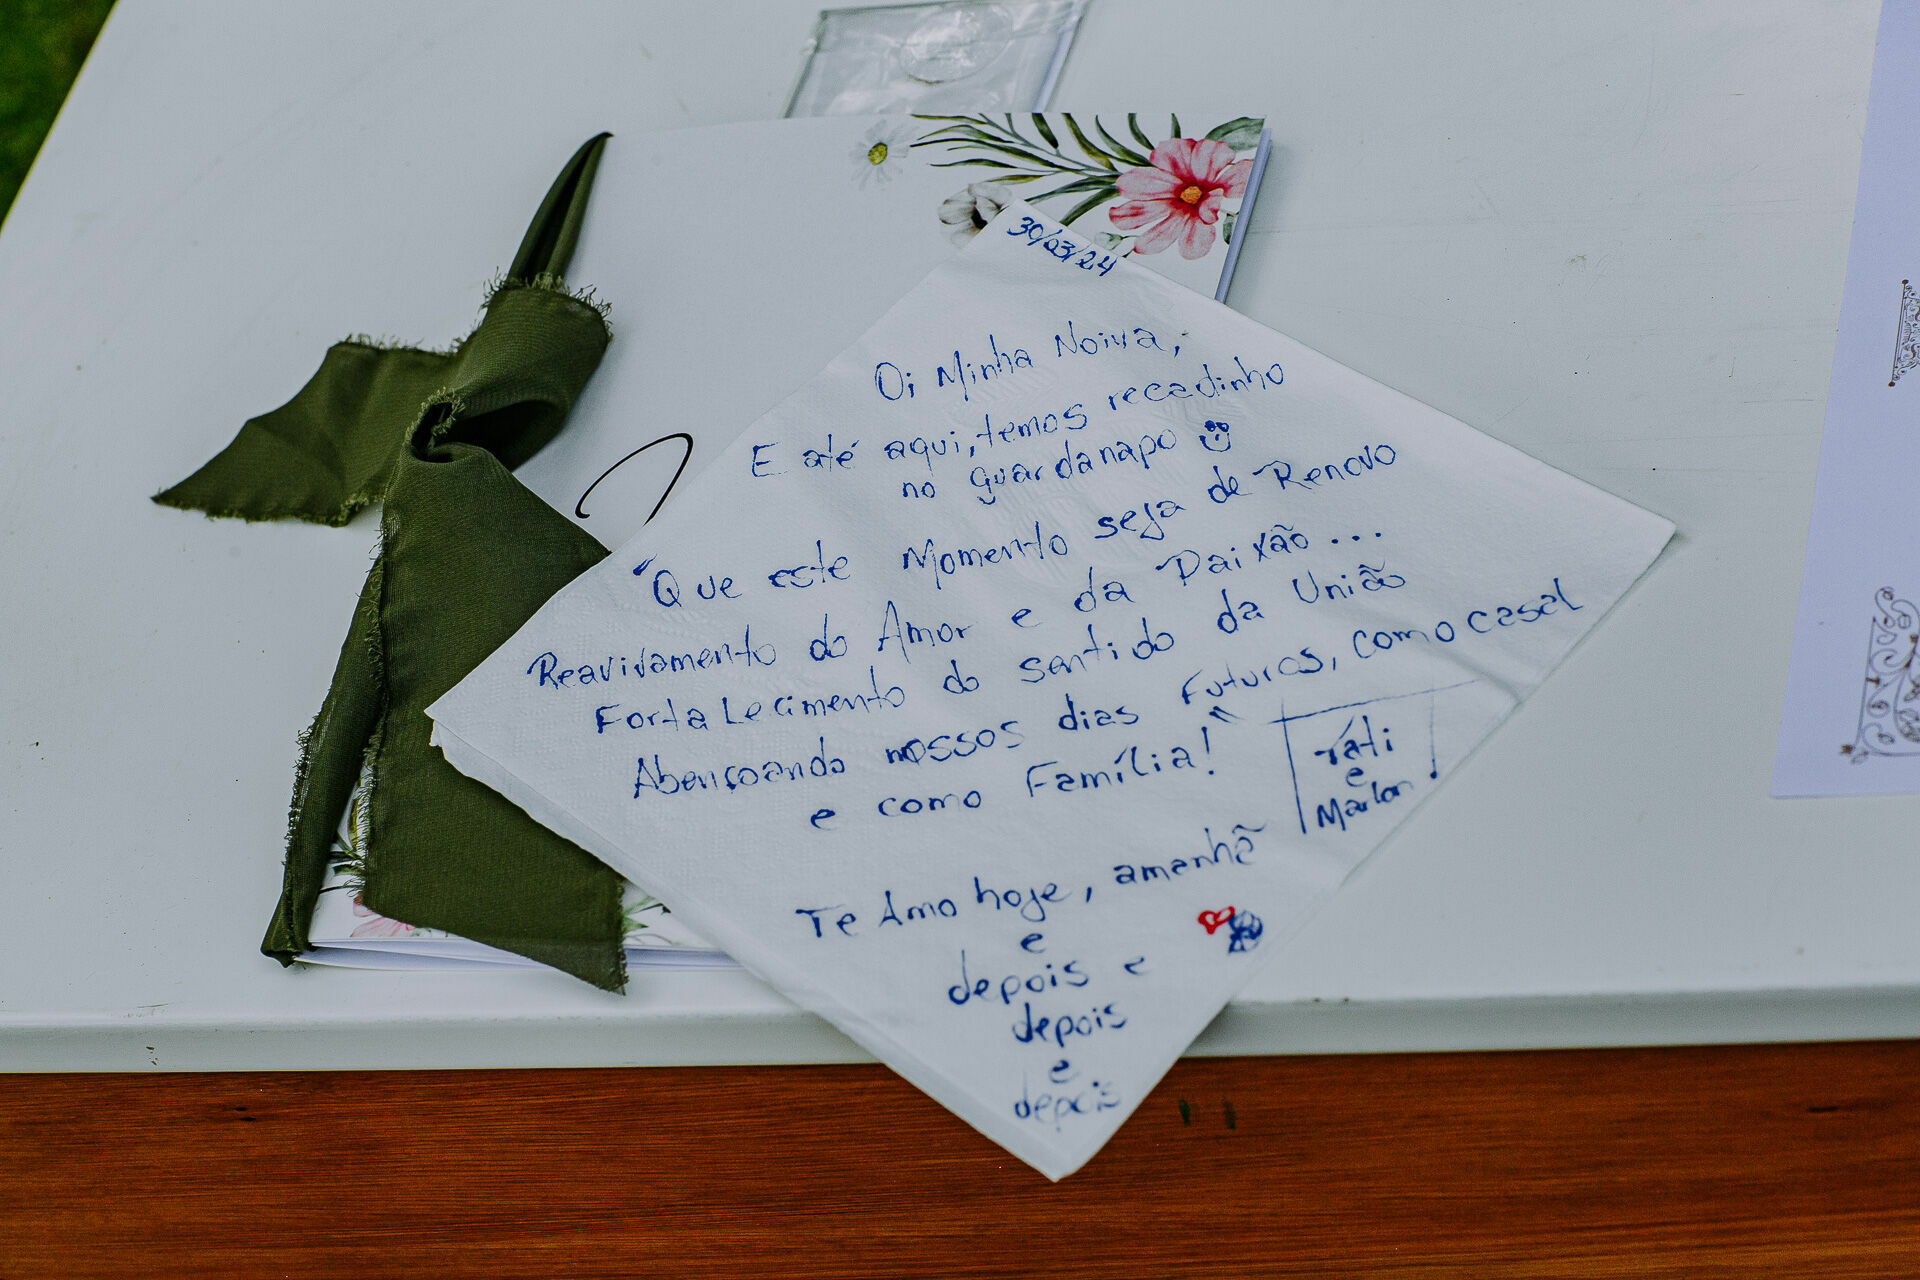 30/03/24
Oi Minha Noiva,
E até aqui, temos recadinho
no guardanapo
"Que este Momento seja de Renovo
Reavivamento do Amor e da Paixão...
Fortalecimento do sentido da União
Abençoando nossos dias Futuros, como casal
e como Família!"
Tati
e
Marlon
Te Amo hoje, amanhã
e
depois e
depois
e
depois